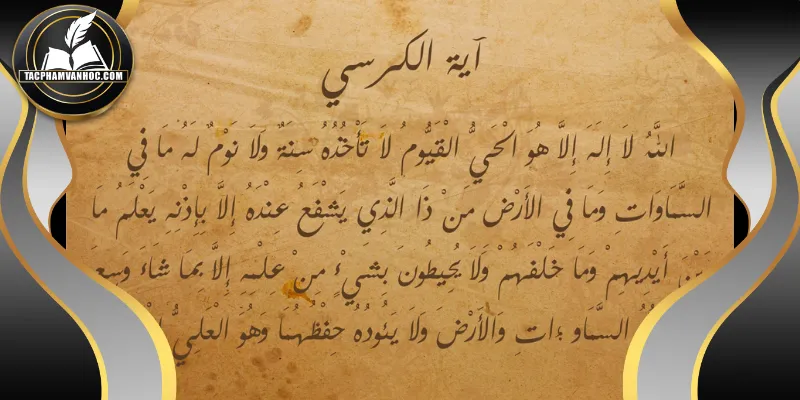 TACPHAMVANHOC.COM
آية الكرسي
اللهُ لَا إِلَهَ إِلَّا هُوَ الْحَيُّ الْقَيُّومُ لَا تَأْخُذُهُ سِنَةٌ وَلَا نَوْمٌ لَهُ مَا فِي
السَّمَاوَاتِ وَمَا فِي الأَرْضِ مَنْ ذَا الَّذِي يَشْفَعُ عِنْدَهُ إِلَّا بِإِذْنِهِ يَعْلَمُ مَا
أَيْدِيهِمْ وَمَا خَلْفَهُمْ وَلَا يُحِيطُونَ بِشَيْءٍ مِنْ عِلْمِهِ إِلَّا بِمَا شَاءَ وَسِعَ
السَّمَاو ءاتِ وَالْأَرْضَ وَلَا يَئُودُهُ حِفْظُهُمَا وَهُوَ الْعَلِيُّ